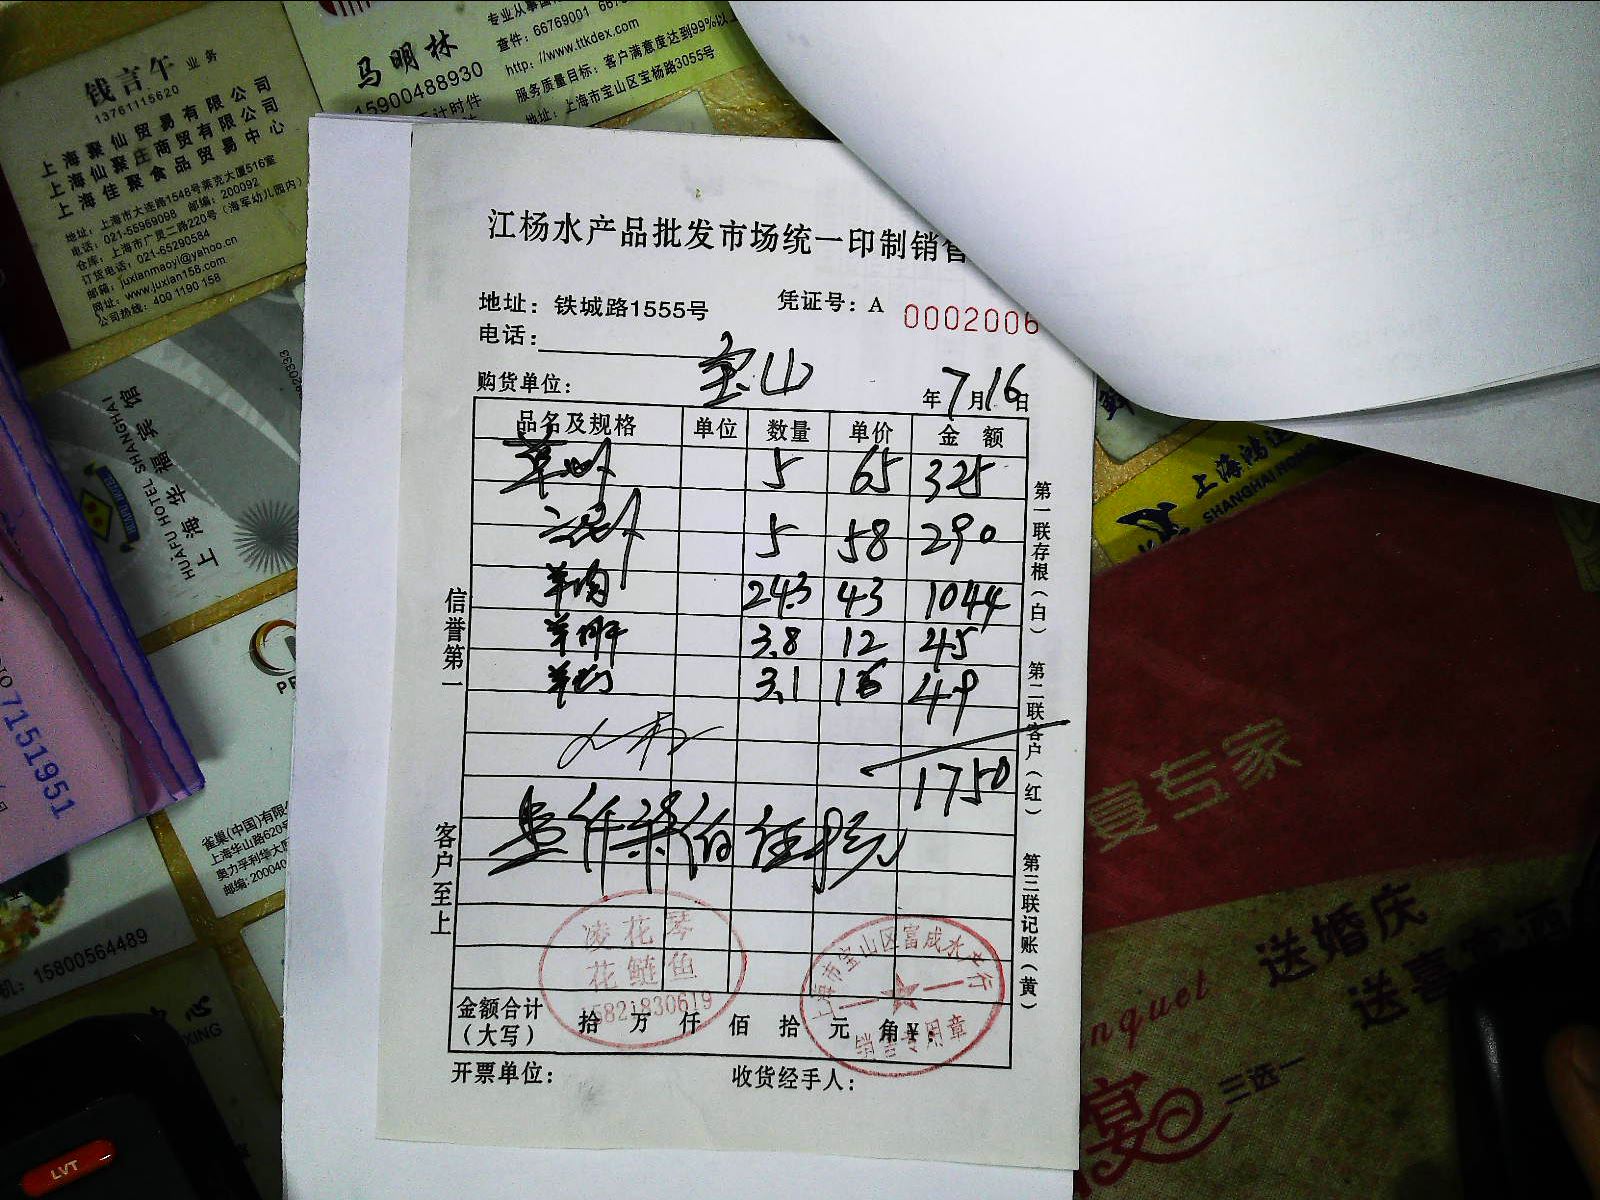 钱言午 业务
13761115620
上海聚仙贸易有限公司
上海仙聚庄商贸有限公司
上海佳聚食品贸易中心
地址：上海市大连路1548号莱克大厦516室
电话：021-55969098 邮编：200092
仓库：上海市广灵二路220号（海军幼儿园内）
订货电话：021-65290584
邮箱：juxianmaoyi@yahoo.cn
网址：www.juxian158.com
公司热线：400 1190 158
马明林
15900488930
查件：66769001
http://www.ttkdex.com
服务质量目标：客户满意度达到99%以
地址：上海市宝山区宝杨路3055号
江杨水产品批发市场统一印制销售
地址：铁城路1555号
凭证号：A 0002006
电话：
购货单位： 宝山
年7月16日
品名及规格 单位 数量 单价 金额
5 65 325
5 58 290
羊肉 24.3 43 1044
羊肝 3.8 12 45
羊 3.1 16 49
1750
壹仟柒佰伍拾元
凌花琴
花鲢鱼
15821830619
上海市宝山区富成水产行
销售专用章
金额合计
（大写）
拾 万 仟 佰 拾 元 角 ¥：
开票单位：
收货经手人：
信誉第一
客户至上
第一联存根（白）
第二联客户（红）
第三联记账（黄）
上海华福宾馆
HUAFU HOTEL SHANGHAI
7151951
雀巢(中国)有限公
上海华山路620号
奥力孚利华大厦
邮编：200040
机：15800564489
中心
XING
LVT
上海鸿运
SHANGHAI HONG
宴专家
送婚庆
送喜
nquet
宴
三选一